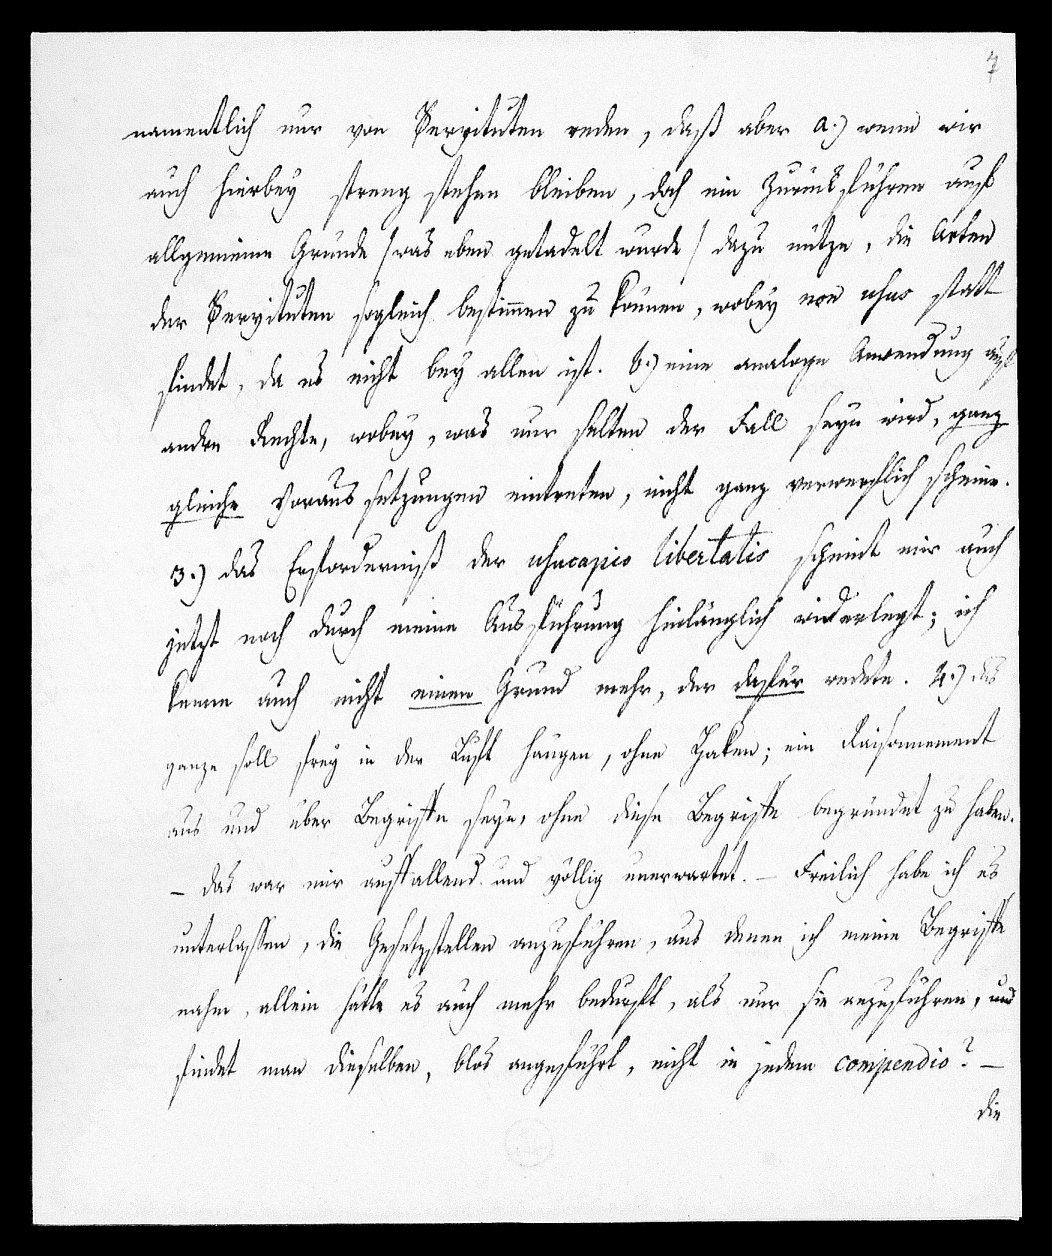 7
namentlich nur von Servituten reden, daß aber a.) wenn wir
auch hierbey streng stehen bleiben, doch ein Zurückführen auf
allgemeine Gründe /was eben getadelt wurde/ dazu nütze, die Arten
der Servituten sogleich bestimmen zu können, wobey non usus statt
findet, da es nicht bey allen ist. b.) eine analoge Anwendung auf
andre Rechte, wobey, was nur selten der Fall seyn wird, ganz
gleiche Voraussetzungen eintreten, nicht ganz verwerflich scheine.
3.) das Erforderniß der usucapio libertatis scheint mir auch
jetzt noch durch meine Ausführung hinlänglich widerlegt; ich
kenne auch nicht einen Grund mehr, der dafür redete. 4.) das
ganze soll frey in der Luft hangen, ohne Haken; ein Raisonnement
aus und über Begriffe seyn, ohne diese Begriffe begründet zu haben.
– das war mir auffallend und völlig unerwartet. – Freilich habe ich es
unterlassen, die Gesetzstellen anzuführen, aus denen ich meine Begriffe
nahm, allein hätte es auch mehr bedurft, als nur sie anzuführen, und
findet man dieselben, blos angeführt, nicht in jedem compendio? –
die